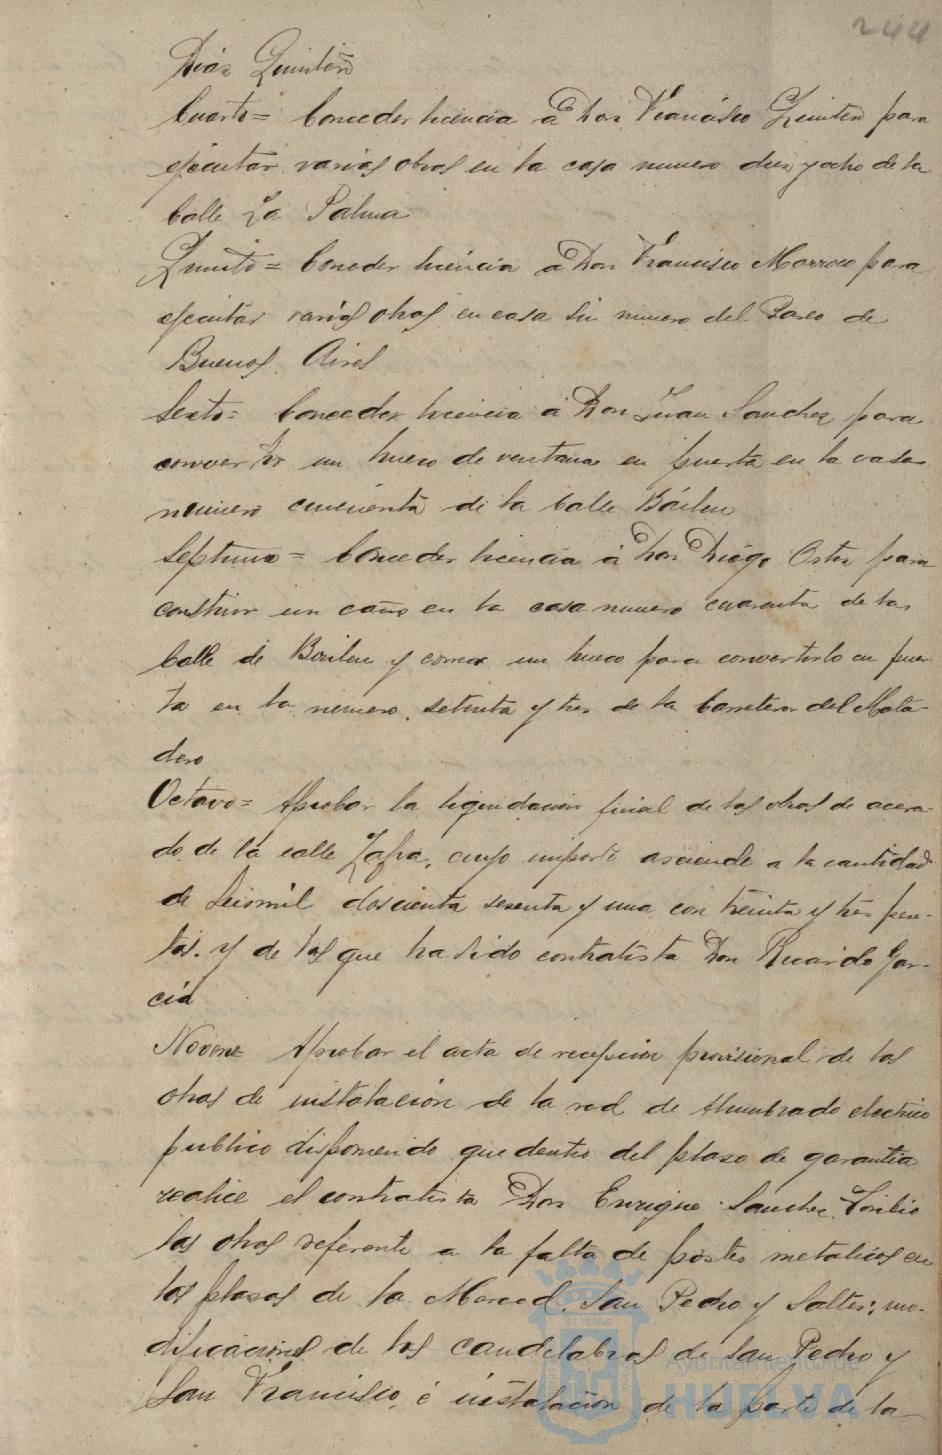 244
Diáz Quintero
Cuarto= Conceder licencia á Don Francisco Quintero para
ejecutar varias obras en la casa numero diez y ocho de la
Calle La Palma
Quinto= Conceder licencia á Don Francisco Marroco para
ejecutar varias obras en casa sin numero del Paseo de
Buenos Aires
Sexto= Conceder licencia á Don Juan Sanchez para
convertir un hueco de ventana en puerta en la casa
numero cincuenta de la Calle Báilen
Septimo= Conceder licencia á Don Diégo Orta para
construir un caño en la casa numero cuarenta de la
Calle de Bailen y correr un hueco para convertirlo en puer-
ta en la numero setenta y tres de la Carretera del Mata-
dero
Octavo= Aprobar la liquidacion final de las obras de acera-
do de la calle Zafra, cuyo importe asciende a la cantidad
de Seismil doscienta sesenta y una con treinta y tres pese-
tas. y de las que ha sido contratista Don Ricardo Gar-
cia
Noveno= Aprobar el acta de recepcion provisional de las
obras de instalacion de la red de Alumbrado electrico
publico disponiendo que dentro del plazo de garantia
realice el contratista Don Enrique Sanchez Toribio
las obras referente a la falta de postes metalicos en
las plazas de la Merced, San Pedro y Saltes; mo-
dificaciones de los candelabros de San Pedro y
San Francisco, é instalacion de la parte de la
Ayuntamiento de
HUELVA